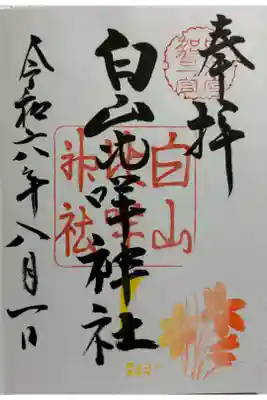 奉拝
白山比咩神社
白山比咩神社
令和六年八月一日